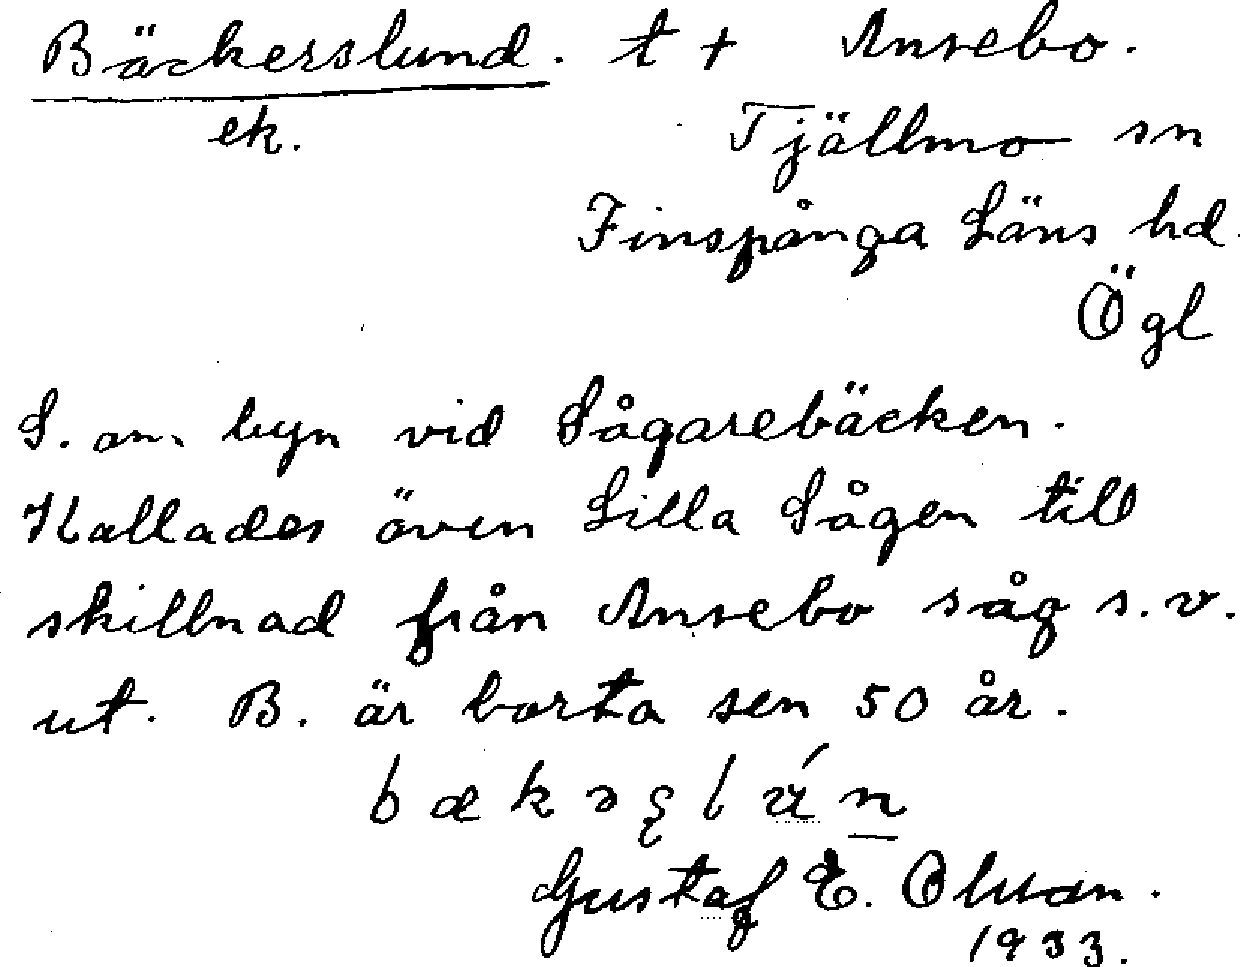 Bäckerslund. t + Ansebo.
ek. Tjällmo sn
Finspånga Läns hd.
Ögl
S. om byn vid Sågarebäcken.
Kallades även Lilla Sågen till
skillnad från Ansebo såg s.v.
ut. B. är borta sen 50 år.
bækəʂlún
Gustaf E. Olsson.
1933.